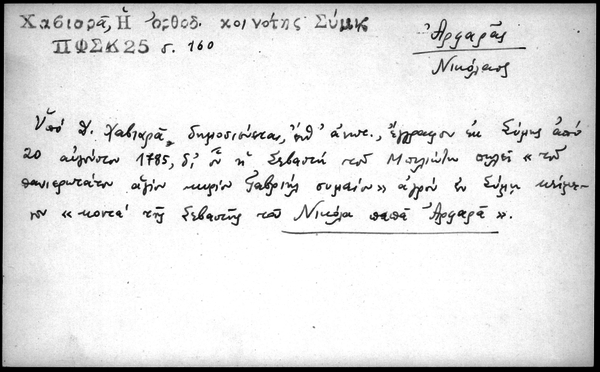 Χαβιαρᾶ, Ἡ Ὀρθοδ. κοινότης Σύμης
ΠΦΣΚ 25 σ. 160
Ἀργαρᾶς
Νικόλαος
Ὑπό Δ. Χαβιαρᾶ, δημοσιεύεται, ἔνθ' ἀνωτ., ἔγγραφον ἐκ Σύμης ἀπό
20 αὐγούστου 1785, δι' οὗ ἡ Σεβαστή τοῦ πωλεῖ «τοῦ
πανιερωτάτου ἁγίου κυρίου Γαβριήλ συμαίου» ἀγρόν ἐν Σύμῃ κείμε-
νον «κοντά τῆς Σεβαστῆς τοῦ Νικόλα παπᾶ Ἀργαρᾶ».